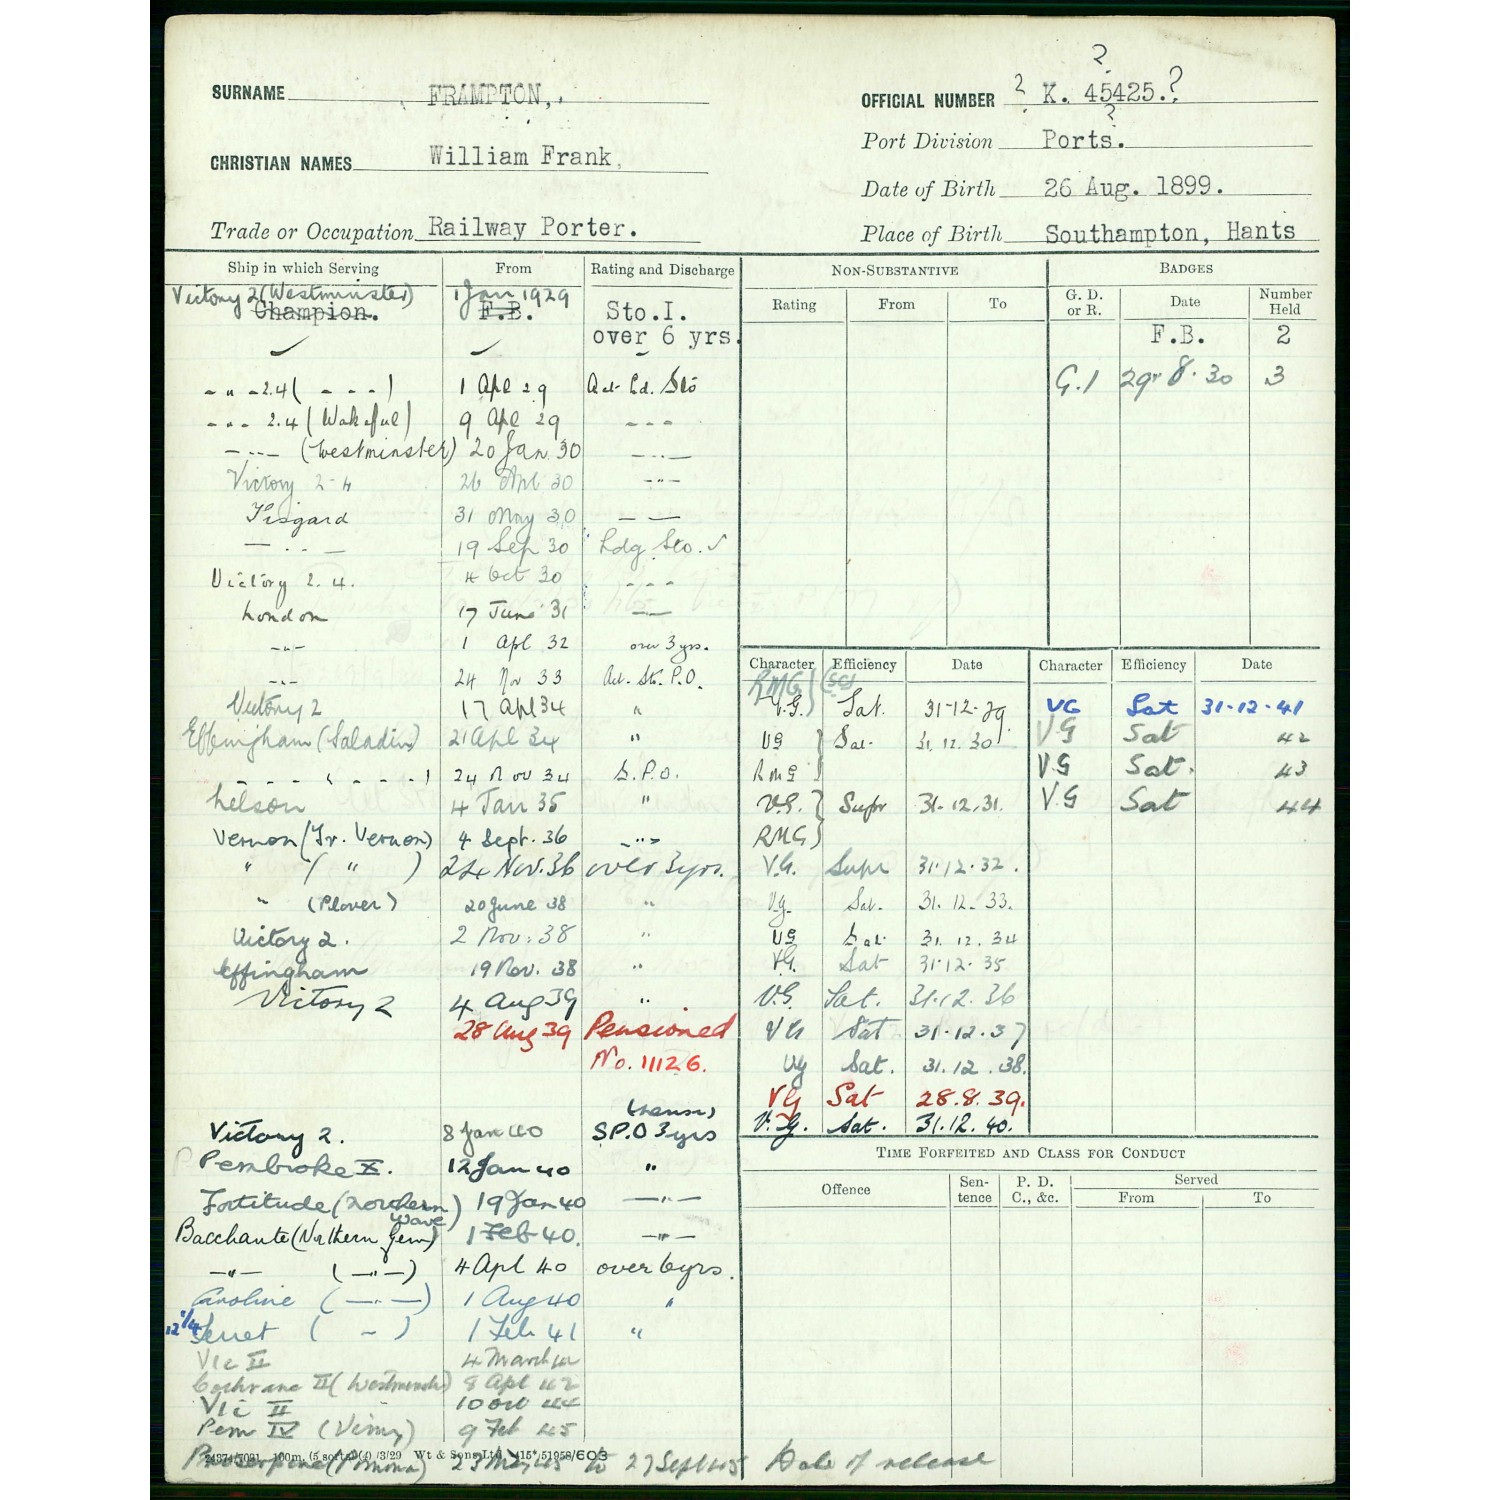 SURNAME FRAMPTON,
OFFICIAL NUMBER ? K. 45425.?
?
?
CHRISTIAN NAMES William Frank,
Port Division Ports.
Date of Birth 26 Aug. 1899.
Trade or Occupation Railway Porter.
Place of Birth Southampton, Hants
Ship in which Serving From Rating and Discharge
Victory 2 (Westminster) 1 Jan 1929
Champion. F.B. Sto.I.
over 6 yrs.
- " - 2.4 ( - - - ) 1 Apl 29 Act Ld. Sto
- " - 2.4 (Wakeful) 9 Apl 29 - - -
- " - (Westminster) 20 Jan 30 - " -
Victory 2-4 26 Apl 30 - " -
Fisgard 31 May 30 — —
— " — 19 Sep 30 Ldg Sto. ✓
Victory 2.4. 4 Oct 30 - - -
London 17 June 31 — —
- " - 1 Apl 32 over 3 yrs.
- " - 24 Nov 33 Act. Sto. P.O.
Victory 2 17 Apl 34 "
Effingham (Saladin) 21 Apl 34 "
- - - ( - - - ) 24 Nov 34 S.P.O.
Nelson 4 Jan 35 "
Vernon (Tr. Vernon) 4 Sept. 36 - " -
" ( " ) 24 Nov. 36 over 3 yrs.
" (Plover) 20 June 38 "
Victory 2. 2 Nov. 38 "
Effingham 19 Nov. 38 "
Victory 2 4 Aug 39 "
28 Aug 39 Pensioned
No. 11126.
(pensr)
Victory 2. 8 Jan 40 SPO 3 yrs
Pembroke X. 12 Jan 40 "
Fortitude (Northern Wave) 19 Jan 40 — " —
Bacchante (Northern Gem) 1 Feb 40. — " —
— " — ( — " — ) 4 Apl 40 over 6 yrs.
Caroline ( — " — ) 1 Aug 40 "
12 1/4 Ferret ( - ) 1 Feb 41 "
Vic II 4 March 42
Cochrane II (Westminster) 8 Apl 42
Vic II 10 Oct 44
Pem IV (Vimy) 9 Feb 45
Proserpine (Pomona) 23 May 45 to 27 Sept 45 Date of release
100m. (5 sorts) (4) /3/29 Wt & Sons Ltd 415* /51958/603
NON-SUBSTANTIVE
Rating From To
BADGES
G. D. or R. Date Number Held
F.B. 2
G.1 29 8.30 3
Character Efficiency Date
RMG (SC)
V.G. Sat. 31-12-29
VG Sat. 31.12.30
RMG
V.G. Supr 31-12.31.
RMG
V.G. Supr 31.12.32.
V.G. Sat. 31.12.33.
VG Sat 31.12.34
V.G. Sat 31.12.35
V.G. Sat. 31.12.36
VG Sat 31.12.37
VG Sat. 31.12.38.
VG Sat 28.8.39.
V.G. Sat. 31.12.40.
Character Efficiency Date
VG Sat 31-12-41
VG Sat 42
V.G Sat. 43
V.G Sat 44
TIME FORFEITED AND CLASS FOR CONDUCT
Offence Sentence P. D. C., &c. Served
From To